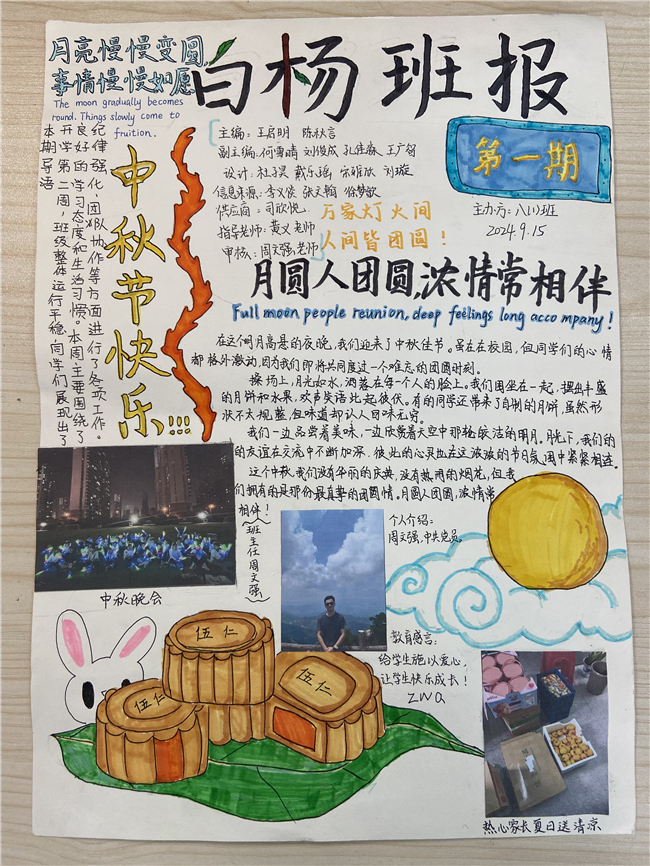 月亮慢慢变圆,
事情慢慢如愿
The moon gradually becomes
round. Things slowly come to
fruition.
白杨班报
第一期
主办方: 八(1)班
2024.9.15
主编: 王启明 陈秋言
副主编: 何雪晴 刘俊成 孔佳淼
设计: 戴乐瑶 刘璇
信息来源: 张文翰 徐梦欣
供应商: 司欣悦
指导老师: 黄义老师
审核: 周文强老师
万家灯火间
人间皆团圆!
本期导语
开学第二周,班级整体运行平稳,同学们展现出了
良好的学习态度和生活习惯。本周主要围绕了
纪律强化、团队协作等方面进行了各项工作。
中秋节快乐!!!
月圆人团圆,浓情常相伴
Full moon people reunion, deep feelings long acco mpany!
在这个明月高悬的夜晚,我们迎来了中秋佳节。虽在在校园,但同学们的心情
都格外激动,因为我们即将共同度过一个难忘的团圆时刻。
操场上,月光如水,洒落在每个人的脸上。我们围坐在一起,摆出丰盛
的月饼和水果,欢声笑语此起彼伏。有的同学还带来了自制的月饼,虽然形
状不太规整,但味道却让人回味无穷。
我们一边品尝着美味,一边欣赏着天空中那轮皎洁的明月。月光下,我们的
的友谊在交流中不断加深,彼此的心灵也在这浓浓的节日氛围中紧紧相连。
这个中秋,我们没有华丽的庆典,没有热闹的烟花,但我
们拥有的是那份最真挚的团圆情。月圆人团圆,浓情常
相伴!
班主任周文强
中秋晚会
个人介绍:
周文强,中共党员。
教育感言:
给学生施以爱心,
让学生快乐成长!
ZWQ
伍仁
伍仁
伍仁
热心家长夏日送清凉